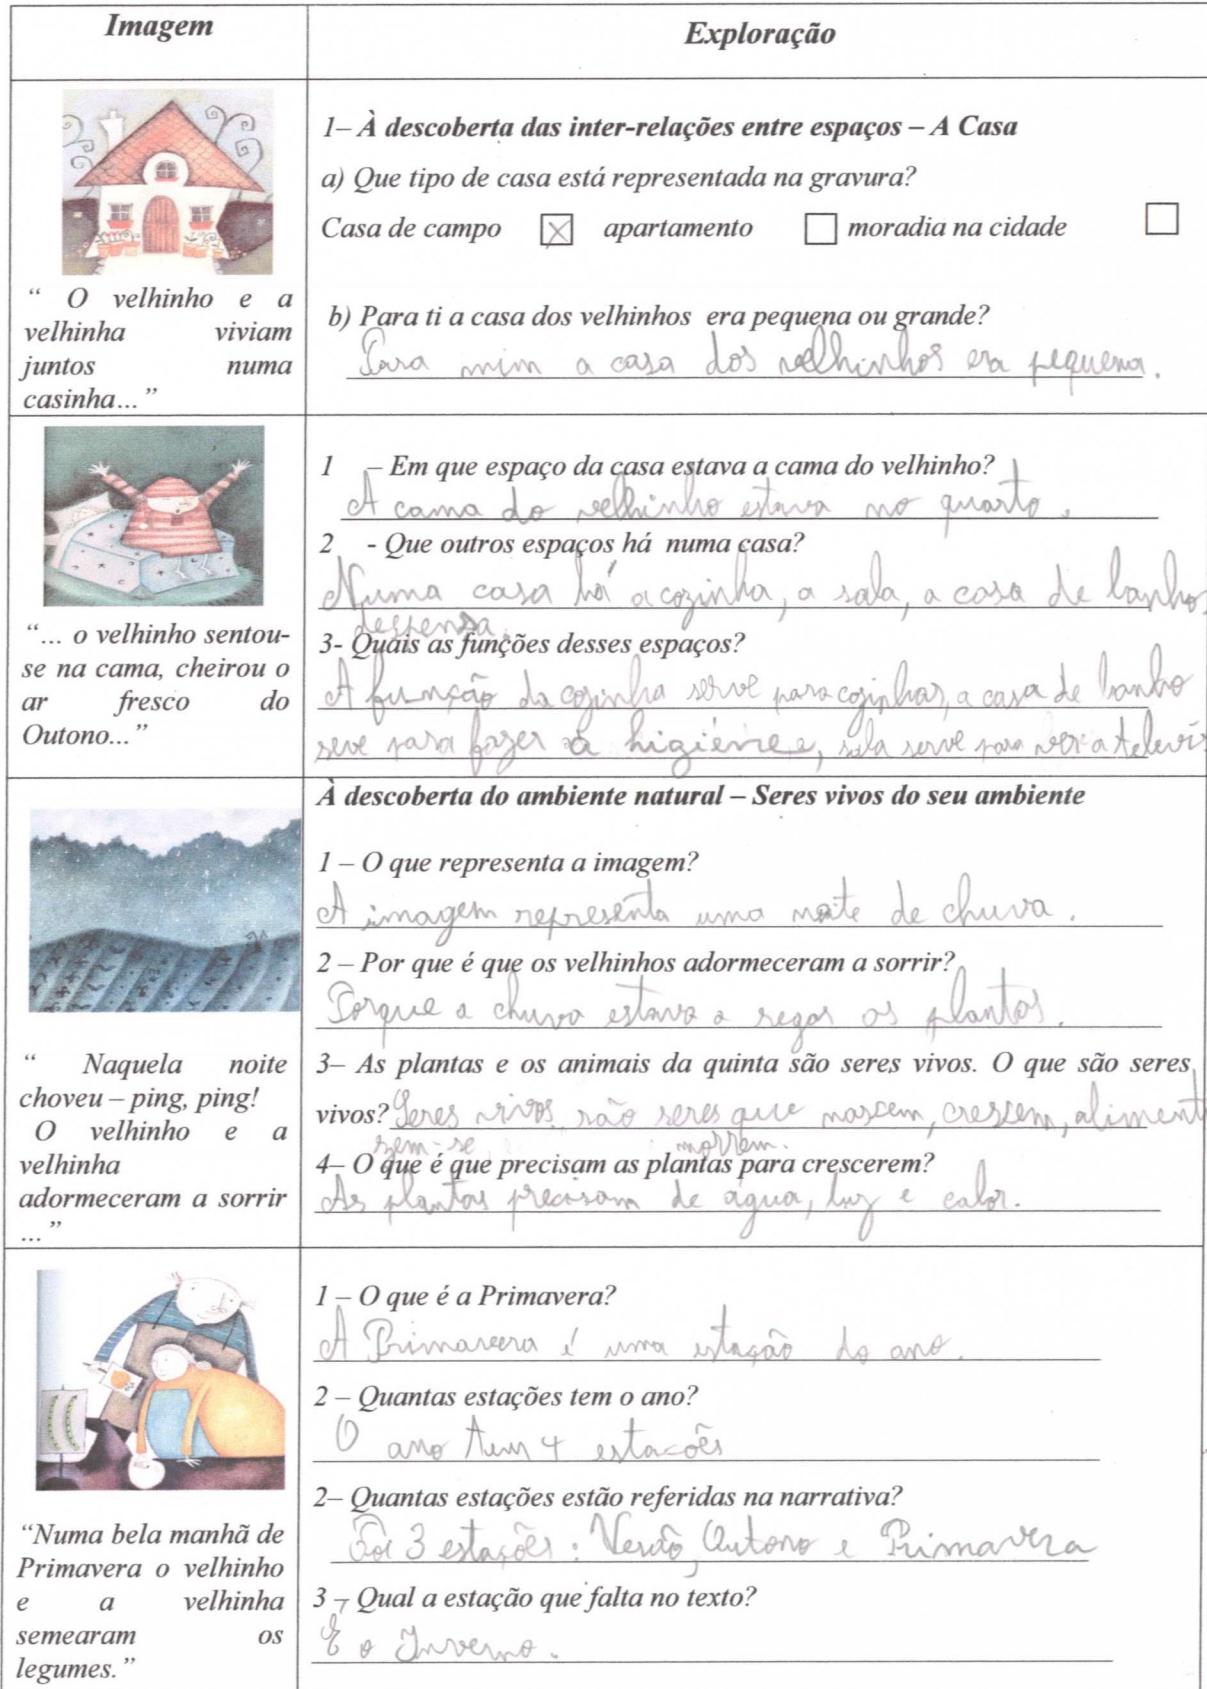 Imagem
Exploração
1– À descoberta das inter-relações entre espaços – A Casa
a) Que tipo de casa está representada na gravura?
Casa de campo ☒ apartamento ☐ moradia na cidade ☐
“ O velhinho e a
velhinha viviam
juntos numa
casinha...”
b) Para ti a casa dos velhinhos era pequena ou grande?
Para mim a casa dos velhinhos era pequena.
“... o velhinho sentou-
se na cama, cheirou o
ar fresco do
Outono...”
1 – Em que espaço da casa estava a cama do velhinho?
A cama do velhinho estava no quarto.
2 - Que outros espaços há numa casa?
Numa casa há a cozinha, a sala, a casa de banho,
despensa.
3- Quais as funções desses espaços?
A função da cozinha serve para cozinhar, a casa de banho
seve para fazer a higiéne e, sala serve para ver a televis
À descoberta do ambiente natural – Seres vivos do seu ambiente
“ Naquela noite
choveu – ping, ping!
O velhinho e a
velhinha
adormeceram a sorrir
...”
1 – O que representa a imagem?
A imagem representa uma noite de chuva.
2 – Por que é que os velhinhos adormeceram a sorrir?
Porque a chuva estava a regar as plantas.
3– As plantas e os animais da quinta são seres vivos. O que são seres
vivos? Seres vivos são seres que nascem, cressem, aliment
morrem.
4– O que é que precisam as plantas para crescerem?
As plantas precisam de água, luz e calor.
“Numa bela manhã de
Primavera o velhinho
e a velhinha
semearam os
legumes.”
1 – O que é a Primavera?
A Primavera é uma estação do ano.
2 – Quantas estações tem o ano?
O ano tem 4 estacões
2– Quantas estações estão referidas na narrativa?
Foi 3 estações: Verão, Outono e Primavera
3 – Qual a estação que falta no texto?
É o Inverno.